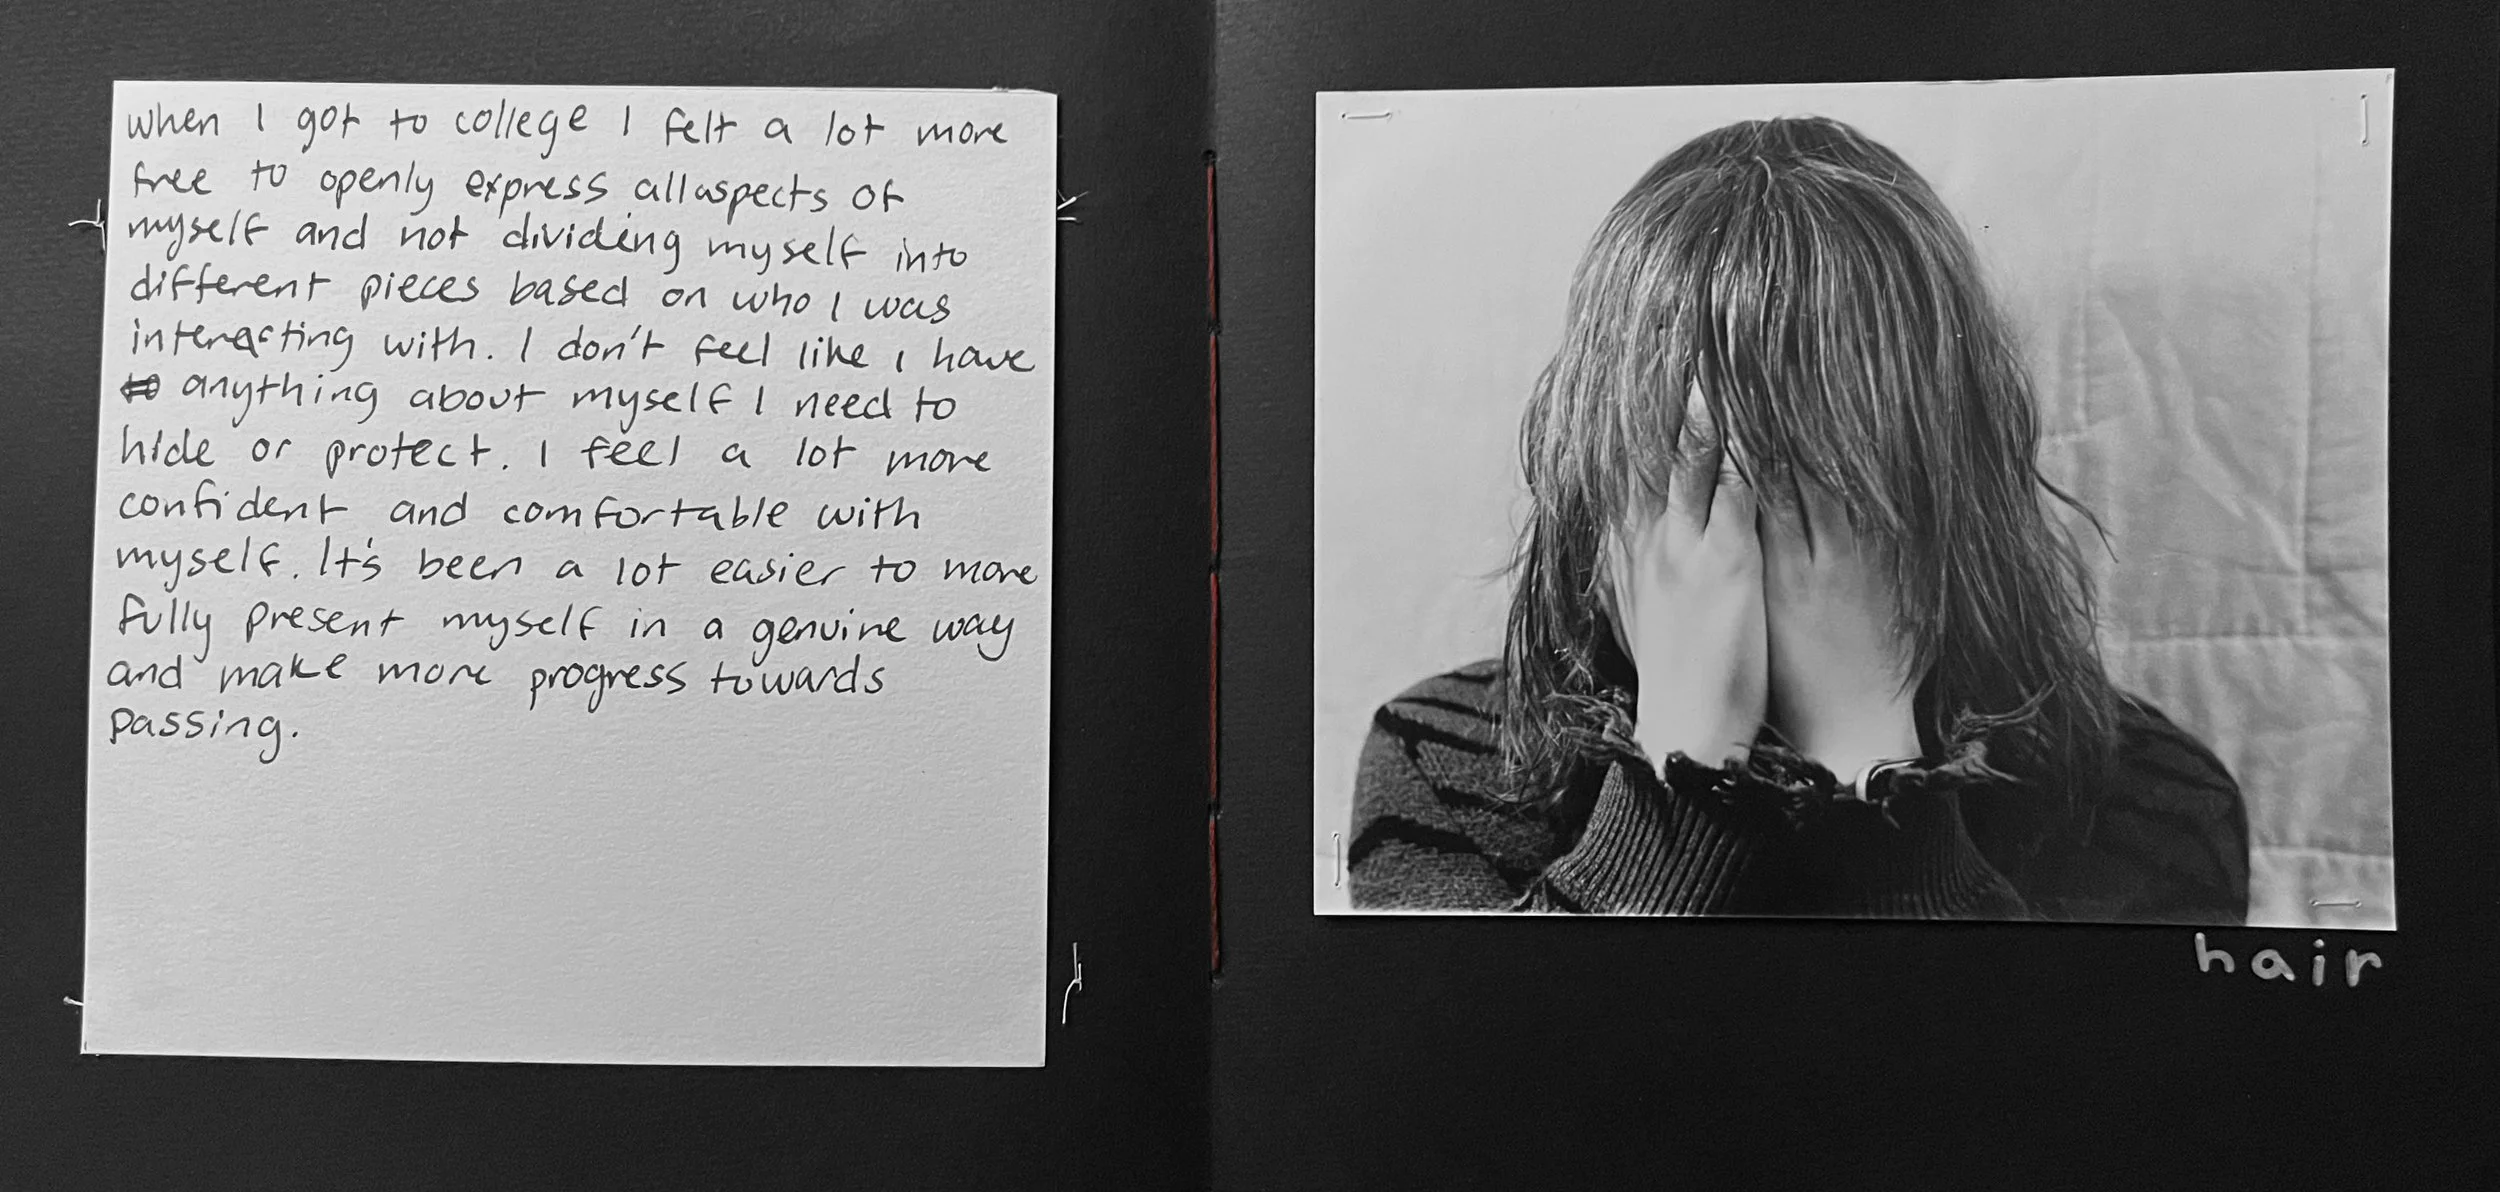 when I got to college I felt a lot more
free to openly express all aspects of
myself and not dividing myself into
different pieces based on who I was
interacting with. I don't feel like I have
to anything about myself I need to
hide or protect. I feel a lot more
confident and comfortable with
myself. It's been a lot easier to more
fully present myself in a genuine way
and make more progress towards
passing.
hair